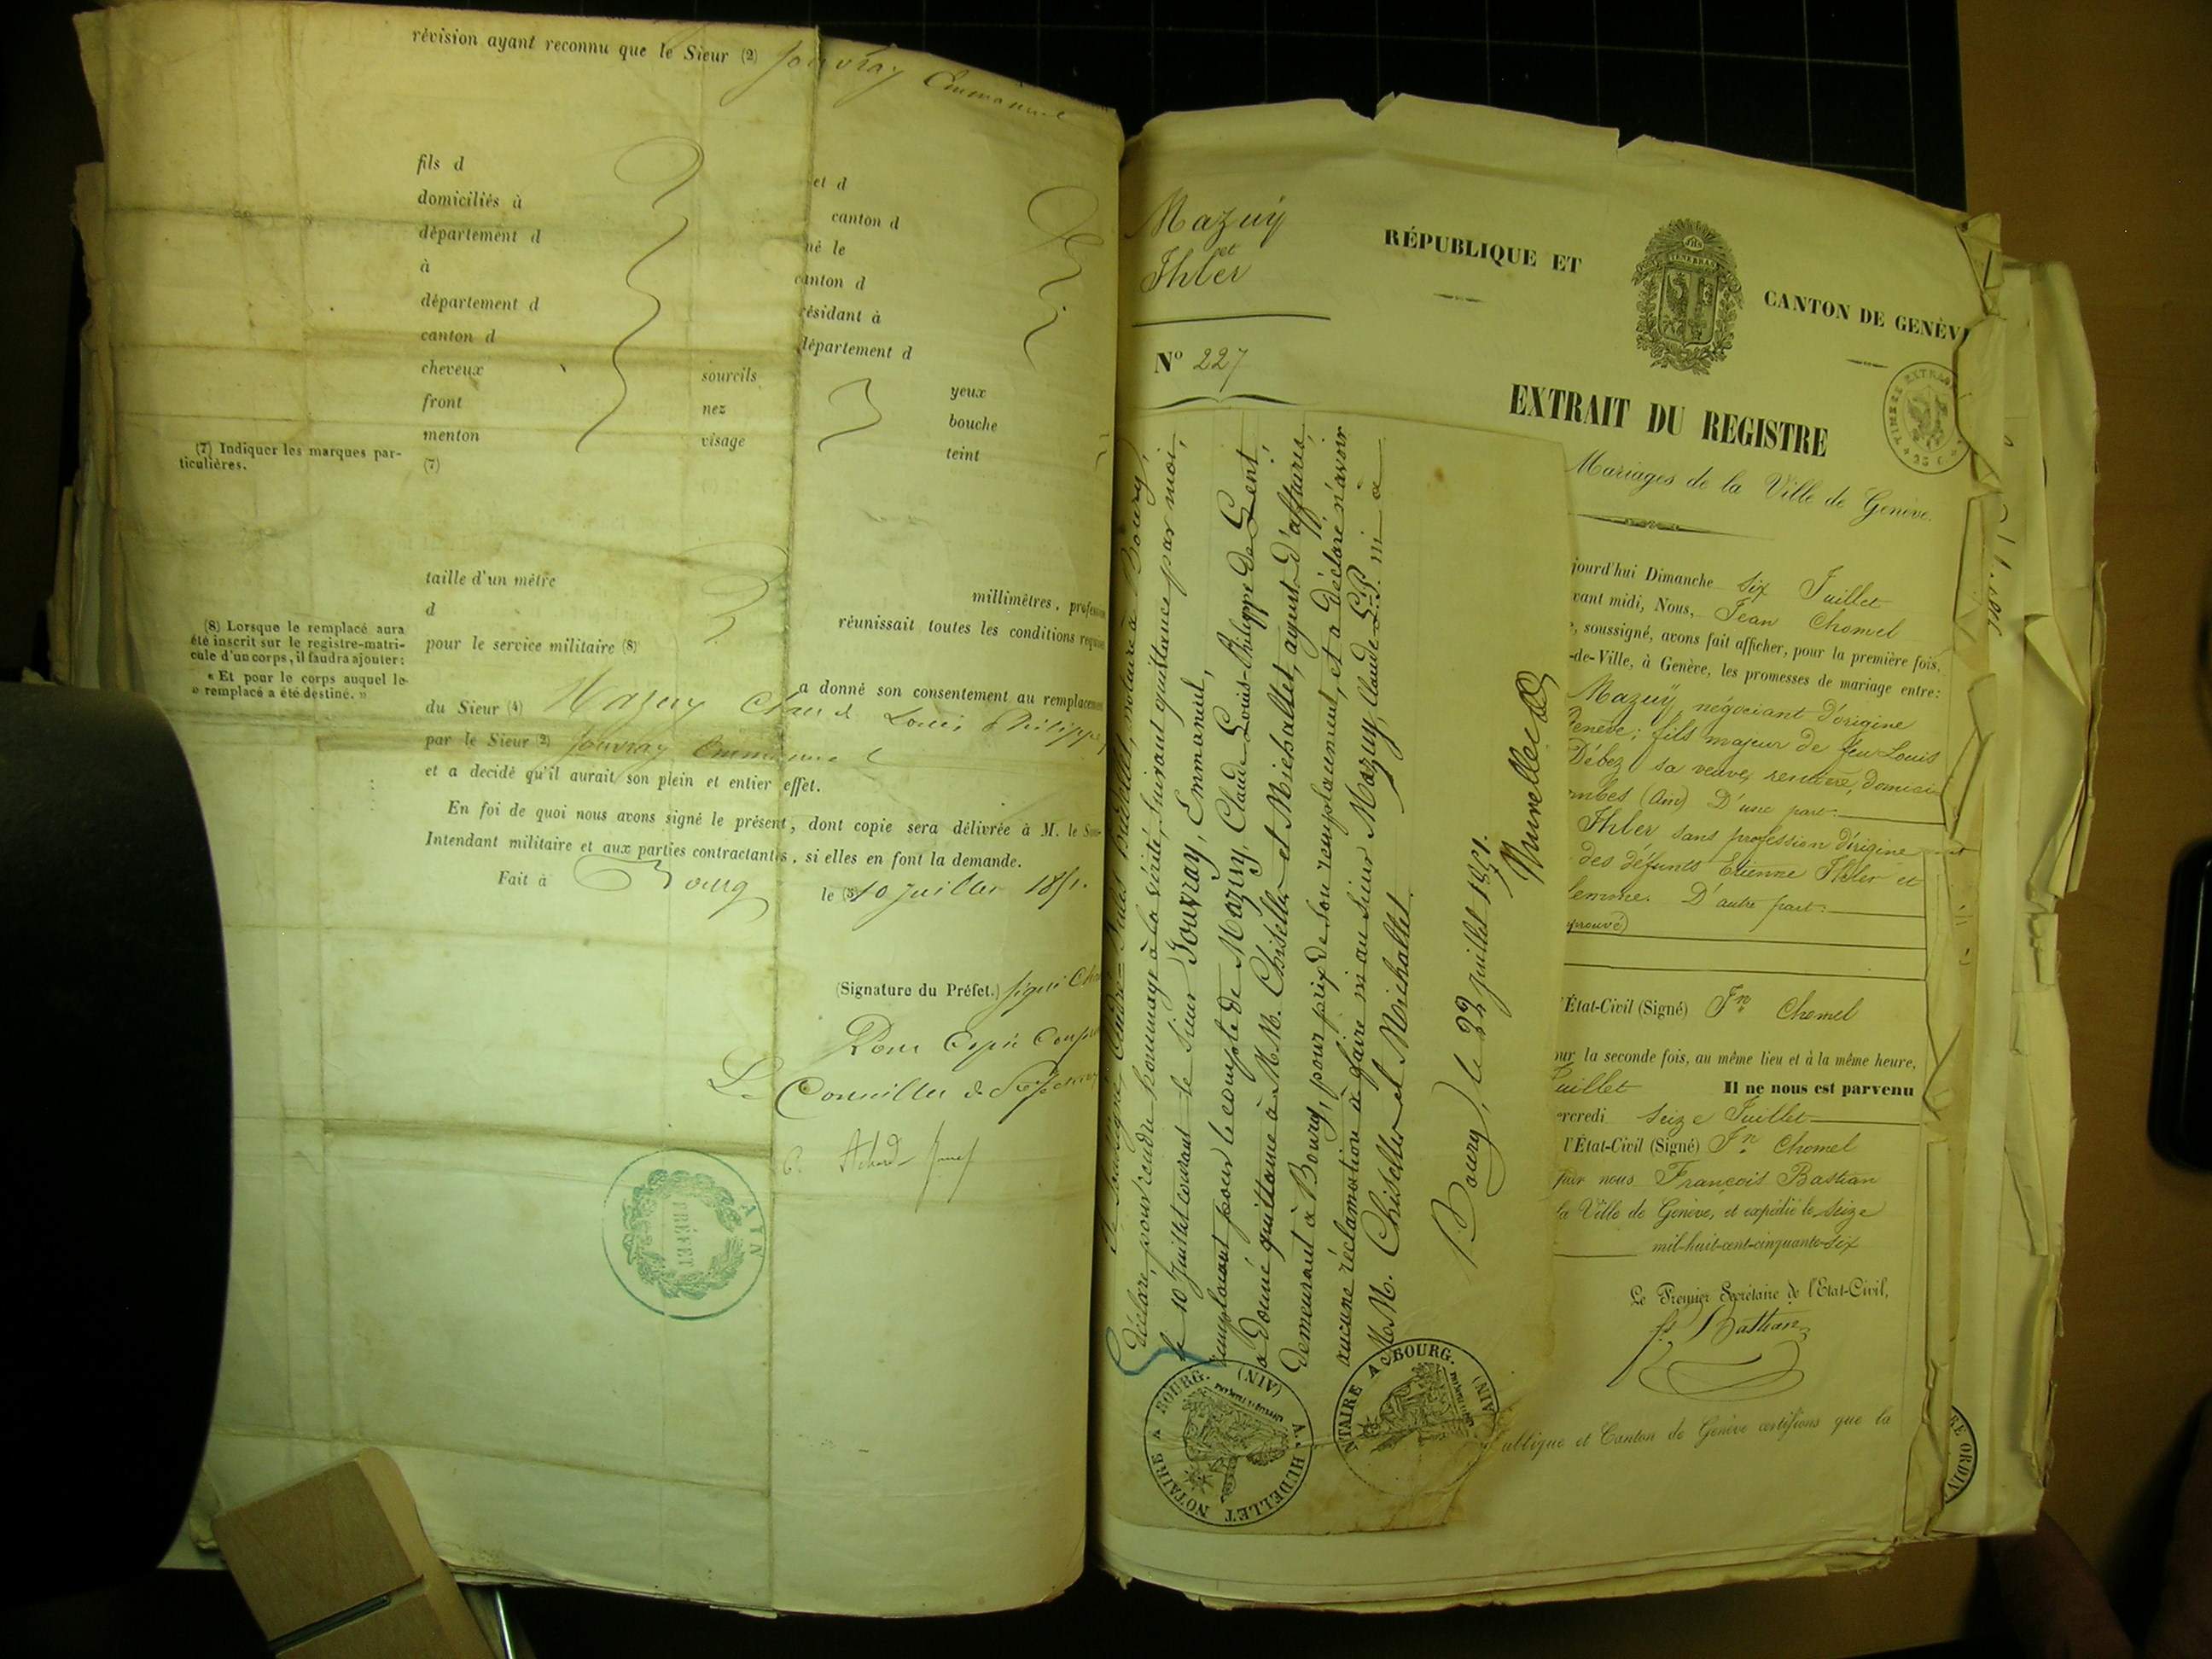 révision ayant reconnu que le Sieur (2) Jouvray Emmanuel
fils d
et d
domiciliés à
canton d
département d
né le
à
canton d
département d
résidant à
canton d
département d
cheveux
sourcils
yeux
front
nez
bouche
menton
visage
teint
(7) Indiquer les marques par-
ticulières.
(7)
taille d'un mètre
millimètres, profession
d
réunissait toutes les conditions requises
pour le service militaire (8)
(8) Lorsque le remplacé aura
été inscrit sur le registre-matri-
cule d'un corps, il faudra ajouter:
« Et pour le corps auquel le
» remplacé a été destiné. »
a donné son consentement au remplacement
du Sieur (4) Mazuy Claude Louis Philippe
par le Sieur (2) Jouvray Emmanuel
et a decidé qu'il aurait son plein et entier effet.
En foi de quoi nous avons signé le présent, dont copie sera délivrée à M. le Sous-
Intendant militaire et aux parties contractantes, si elles en font la demande.
Fait à Bourg le (3) 10 juillet 1851.
(Signature du Préfet.) signé
Pour Copie Conforme
Le Conseiller de Préfecture
AIN
PRÉFET
Mazuÿ
et
Ihler
N° 227
RÉPUBLIQUE ET
CANTON DE GENÈVE
EXTRAIT DU REGISTRE
Mariages de la Ville de Genève.
Je soussigné, André-Jules Hudellet, notaire à Bourg,
déclare, pour rendre hommage à la vérité, suivant quittance par moi,
le 10 Juillet courant le sieur Jouvray, Emmanuel,
remplaçant pour le compte de Mazuy, Claude-Louis-Philippe de Genis
a donné quittance à MM. Chiselle et Michallet, agents d'affaires,
demeurant à Bourg, pour prix de son remplacement, et a déclaré n'avoir
aucune réclamation à faire ni au sieur Mazuy, Claude L. P. ni à
MM. Chiselle et Michallet
Bourg, le 22 juillet 1851.
NOTAIRE A BOURG. (AIN)
A. HUDELLET
NOTAIRE A BOURG. (AIN)
jourd'hui Dimanche six Juillet
vant midi, Nous, Jean Chomel
, soussigné, avons fait afficher, pour la première fois,
-de-Ville, à Genève, les promesses de mariage entre:
Mazuÿ, négociant d'origine
Genève; fils majeur de feu Louis
Débez sa veuve, rentière, domici
ombes (Ain) D'une part.
Ihler sans profession d'origine
des défunts Etienne Ihler et
femme. D'autre part.
pprouvé)
l'État-Civil (Signé) Jn Chomel
our la seconde fois, au même lieu et à la même heure,
Juillet Il ne nous est parvenu
ercredi seize Juillet
l'État-Civil (Signé) Jn Chomel
par nous François Bastian
la Ville de Genève, et expédié le seize
mil-huit-cent-cinquante-six
Le Premier Secrétaire de l'Etat-Civil,
fs Bastian
ublique et Canton de Genève certifions que la